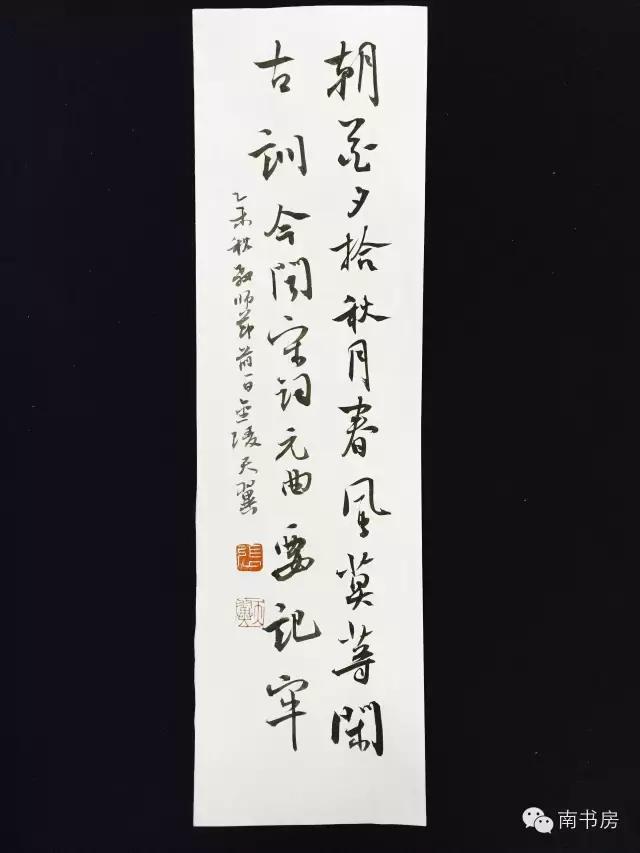 朝花夕拾秋月春風莫等閑
古訓今聞宋詞元曲要記牢
乙未秋教師節前一日金陵天翼
張
天翼
南书房